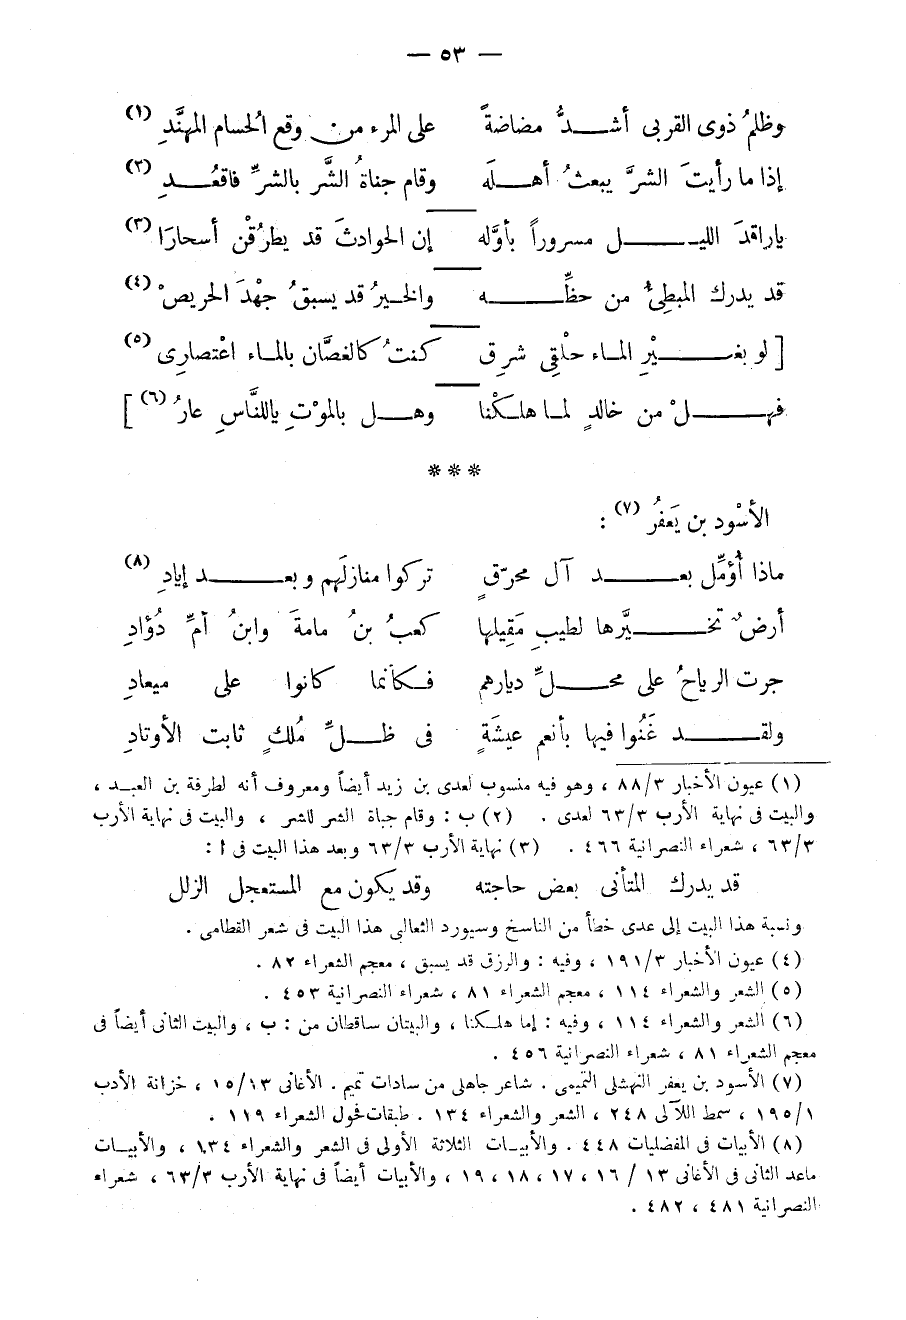 — ٥٣ —
وظلمُ ذوى القربى أشدُّ مضاضةً على المرء من وقع الحسام المهنَّدِ (١)
إذا ما رأيتَ الشرَّ يبعثُ أهلَه وقام جناةُ الشَّر بالشرِّ فاقعُدِ (٢)
ياراقدَ الليل مسروراً بأوَّله إن الحوادثَ قد يطرُقْن أسحارَا (٣)
قد يدرك المبطِئُ من حظِّه والخيرُ قد يسبقُ جهْدَ الحريصْ (٤)
[ لو بغيْرِ الماء حلْقِى شرِق كنتُ كالغصَّان بالماء اعْتصارِى (٥)
فهلْ من خالدٍ لما هلكْنا وهل بالموْتِ ياللنَّاسِ عارُ (٦) ]
***
الأسْود بن يَعفرُ (٧) :
ماذا أُؤمِّل بعد آل محرّقٍ تركوا منازلَهم وبعد إيادِ (٨)
أرضٌ تخيَّرها لطيبِ مَقِيلها كعبُ بنُ مامةَ وابنُ أمِّ دُؤادِ
جرت الرياحُ على محلِّ ديارهم فكأنما كانوا على ميعادِ
ولقد غَنُوا فيها بأنعم عيشَةٍ فى ظلِّ مُلكٍ ثابت الأوتادِ
(١) عيون الأخبار ٨٨/٣ ، وهو فيه منسوب لعدى بن زيد أيضاً ومعروف أنه لطرفة بن العبد ،
والبيت فى نهاية الأرب ٦٣/٣ لعدى . (٢) ب : وقام جباة الشر للشر ، والبيت فى نهاية الأرب
٦٣/٣ ، شعراء النصرانية ٤٦٦ . (٣) نهاية الأرب ٦٣/٣ وبعد هذا البيت فى ا :
قد يدرك المتأنى بعض حاجته وقد يكون مع المستعجل الزلل
ونسبة هذا البيت إلى عدى خطأ من الناسخ وسيورد الثعالبى هذا البيت فى شعر القطامى .
(٤) عيون الأخبار ١٩١/٣ ، وفيه : والرزق قد يسبق ، معجم الشعراء ٨٢ .
(٥) الشعر والشعراء ١١٤ ، معجم الشعراء ٨١ ، شعراء النصرانية ٤٥٣ .
(٦) الشعر والشعراء ١١٤ ، وفيه : إما هلكنا ، والبيتان ساقطان من : ب ، والبيت الثانى أيضاً فى
معجم الشعراء ٨١ ، شعراء النصرانية ٤٥٦ .
(٧) الأسود بن يعفر النهشلى التميمى . شاعر جاهلى من سادات تميم . الأغانى ١٥/١٣ ، خزانة الأدب
١٩٥/١ ، سمط اللآلى ٢٤٨ ، الشعر والشعراء ١٣٤ . طبقات فحول الشعراء ١١٩ .
(٨) الأبيات فى المفضليات ٤٤٨ . والأبيات الثلاثة الأولى فى الشعر والشعراء ١٣٤ ، والأبيات
ماعد الثانى فى الأغانى ١٣ / ١٦ ، ١٧ ، ١٨ ، ١٩ ، والأبيات أيضاً فى نهاية الأرب ٦٣/٣ ، شعراء
النصرانية ٤٨١ ، ٤٨٢ .